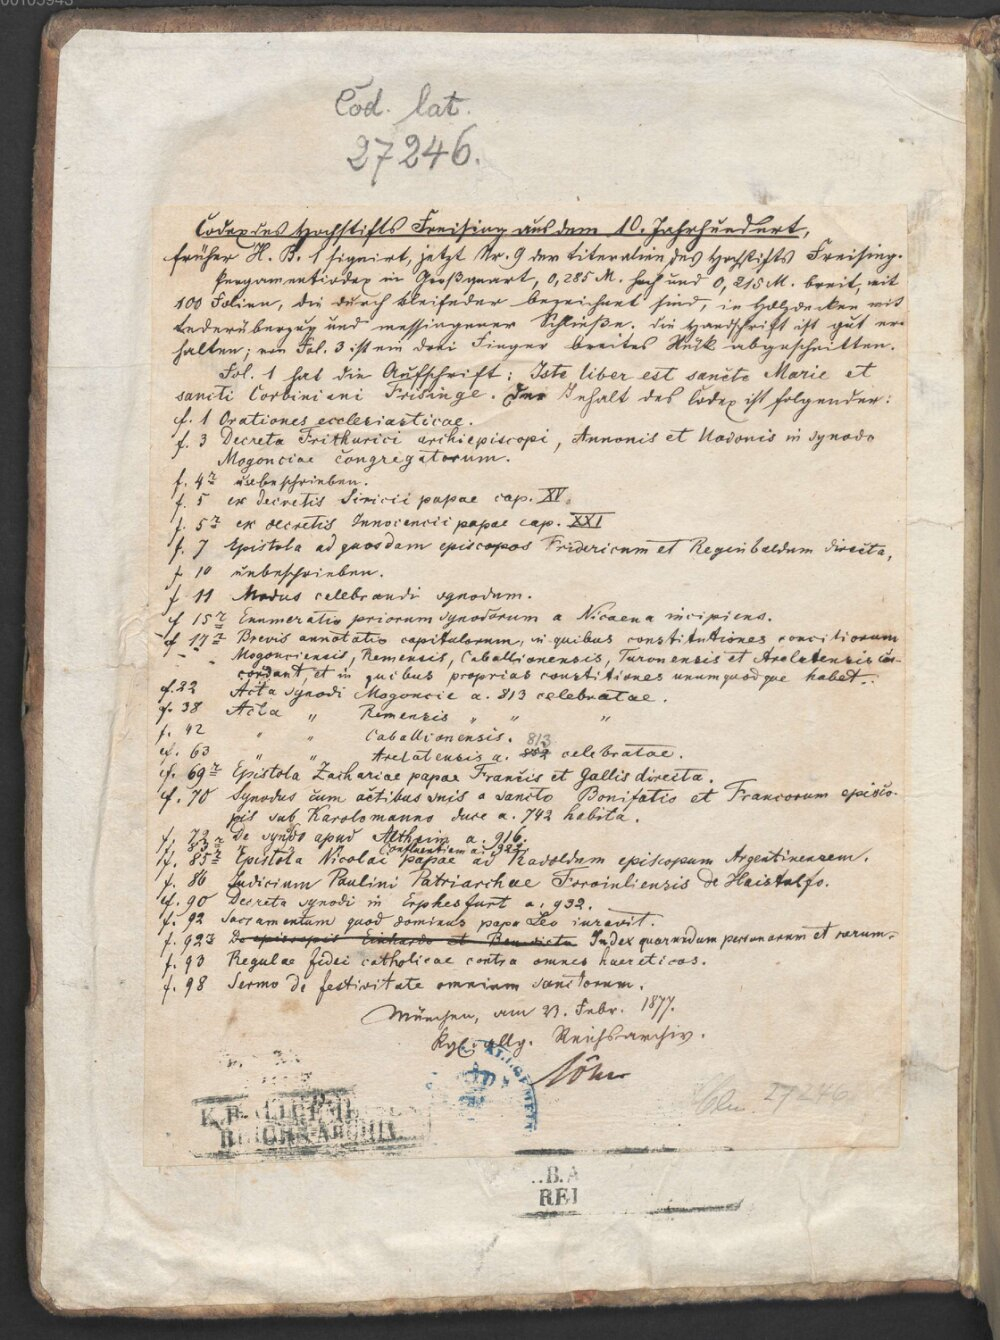 00103943
Cod. lat.
27246.
Codex des Hochstifts Freising aus dem 10. Jahrhundert,
früher H. B. 1 signirt, jetzt Nr. 9 der Literalien des Hochstifts Freising.
Pergamentcodex in Großquart, 0,285 M. hoch und 0,215 M. breit, mit
100 Folien, die durch Bleifeder bezeichnet sind, in Holzdecken mit
Lederüberzug und messingener Schließe. Die Handschrift ist gut er-
halten; von Fol. 3 ist ein drei Finger breites Stück abgeschnitten.
Fol. 1 hat die Aufschrift: Iste liber est sancte Marie et
sancti Corbiniani Frisinge. Der Inhalt des Codex ist folgender:
f. 1 Orationes ecclesiasticae.
f. 3 Decreta Frithurici archiepiscopi, Annonis et Uodonis in synodo
Mogonciae congregatorum.
f. 4 unbeschrieben.
f. 5 ex decretis Siricii papae cap. XV.
f. 5 ex decretis Innocencii papae cap. XXI
f. 7 Epistola ad quosdam episcopos Fridericum et Reginbaldum directa,
f. 10 unbeschrieben.
f. 11 Modus celebrandi synodum.
f. 15 Enumeratio priorum synodorum a Nicaena incipiens.
f. 17 Brevis annotatio capitulorum, in quibus constitutiones conciliorum
Mogonciensis, Remensis, Caballionensis, Turonensis et Arelatensis con-
cordant, et in quibus proprias constitutiones unumquodque habet.
f. 22 Acta synodi Mogoncie a. 813 celebratae.
f. 38 Acta " Remensis " " "
f. 42 " " Caballionensis. 813
f. 63 " " Arelatensis a. 852 celebratae.
f. 69 Epistola Zachariae papae Francis et Gallis directa.
f. 70 Synodus cum actibus suis a sancto Bonifatio et Francorum episco-
pis sub Karolomanno duce a. 742 habita.
f. 72 De synodo apud Altheim a. 916.
f. 83 " " Confluentiam a. 922.
f. 85 Epistola Nicolai papae ad Radoldum episcopum Argentinensem.
f. 86 Iudicium Paulini Patriarchae Foroiuliensis de Haistulfo.
f. 90 Decreta synodi in Erphesfurt a. 932.
f. 92 Sacramentum quod dominus papa Leo iuravit.
f. 92 De episcopis Einhardo et Benedicto Index quorundum personarum et rerum.
f. 93 Regulae fidei catholicae contra omnes haereticos.
f. 98 Sermo de festivitate omnium sanctorum.
München, am 23. Febr. 1877.
Kgl. Allg. Reichsarchiv.
Clm 27246
K. B. ALLGEMEINES
REICHS-ARCHIV
ALLGEMEIN
..B.A
REI